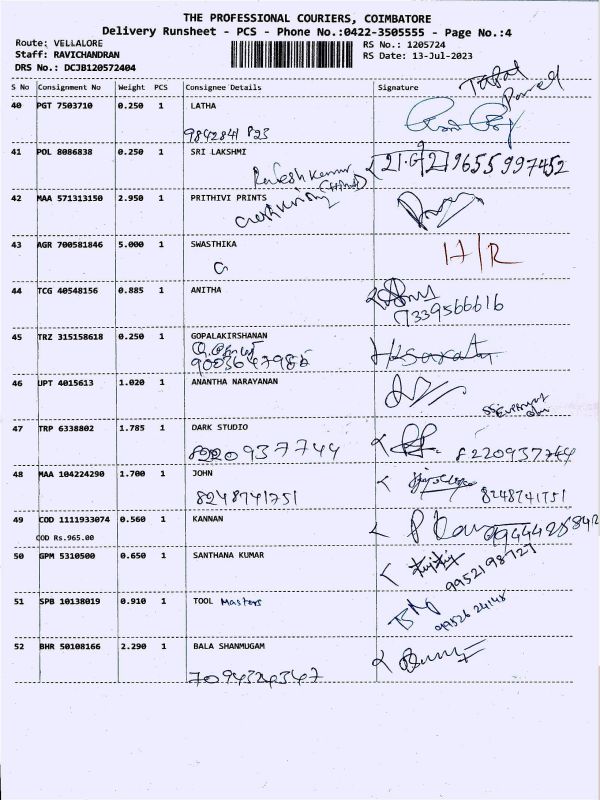 THE PROFESSIONAL COURIERS, COIMBATORE
Delivery Runsheet - PCS - Phone No.:0422-3505555 - Page No.:4
Route: VELLALORE RS No.: 1205724
Staff: RAVICHANDRAN RS Date: 13-Jul-2023
DRS No.: DCJB120572404
S No Consignment No Weight PCS Consignee Details Signature
40 PGT 7503710 0.250 1 LATHA
9842841 P23
41 POL 8086838 0.250 1 SRI LAKSHMI 9655997452
42 MAA 571313150 2.950 1 PRITHIVI PRINTS
43 AGR 700581846 5.000 1 SWASTHIKA H/R
44 TCG 40548156 0.885 1 ANITHA
7339566616
45 TRZ 315158618 0.250 1 GOPALAKIRSHANAN
46 UPT 4015613 1.020 1 ANANTHA NARAYANAN
47 TRP 6338802 1.785 1 DARK STUDIO
8220937744 8220937744
48 MAA 104224290 1.700 1 JOHN
8248741751 8248741751
49 COD 1111933074 0.560 1 KANNAN
COD Rs.965.00
50 GPM 5310500 0.650 1 SANTHANA KUMAR
9952198727
51 SPB 10138019 0.910 1 TOOL Masters
52 BHR 50108166 2.290 1 BALA SHANMUGAM
7094324347